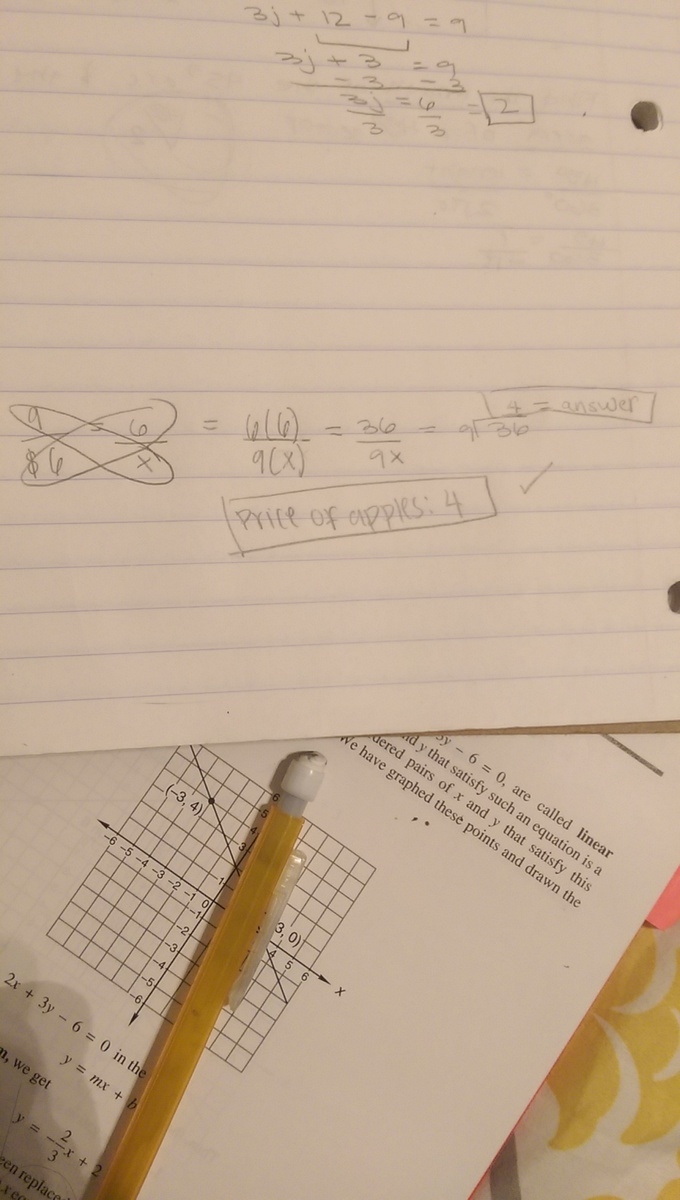 3j + 12 - 9 = 9
3j + 3 = 9
- 3 - 3
3j/3 = 6/3 = 2
9/6 = 6/x = 6(6)/9(x) = 36/9x = 9⟌36 4 = answer
price of apples: 4 ✓
3y - 6 = 0, are called linear
nd y that satisfy such an equation is a
dered pairs of x and y that satisfy this
We have graphed these points and drawn the
(-3, 4)
6
5
4
3
1
-6 -5 -4 -3 -2 -1 0
-1
-2
-3
-4
-5
-6
3, 0)
4 5 6
x
2x + 3y - 6 = 0 in the
y = mx + b
we get
y = -2/3x + 2
een replace